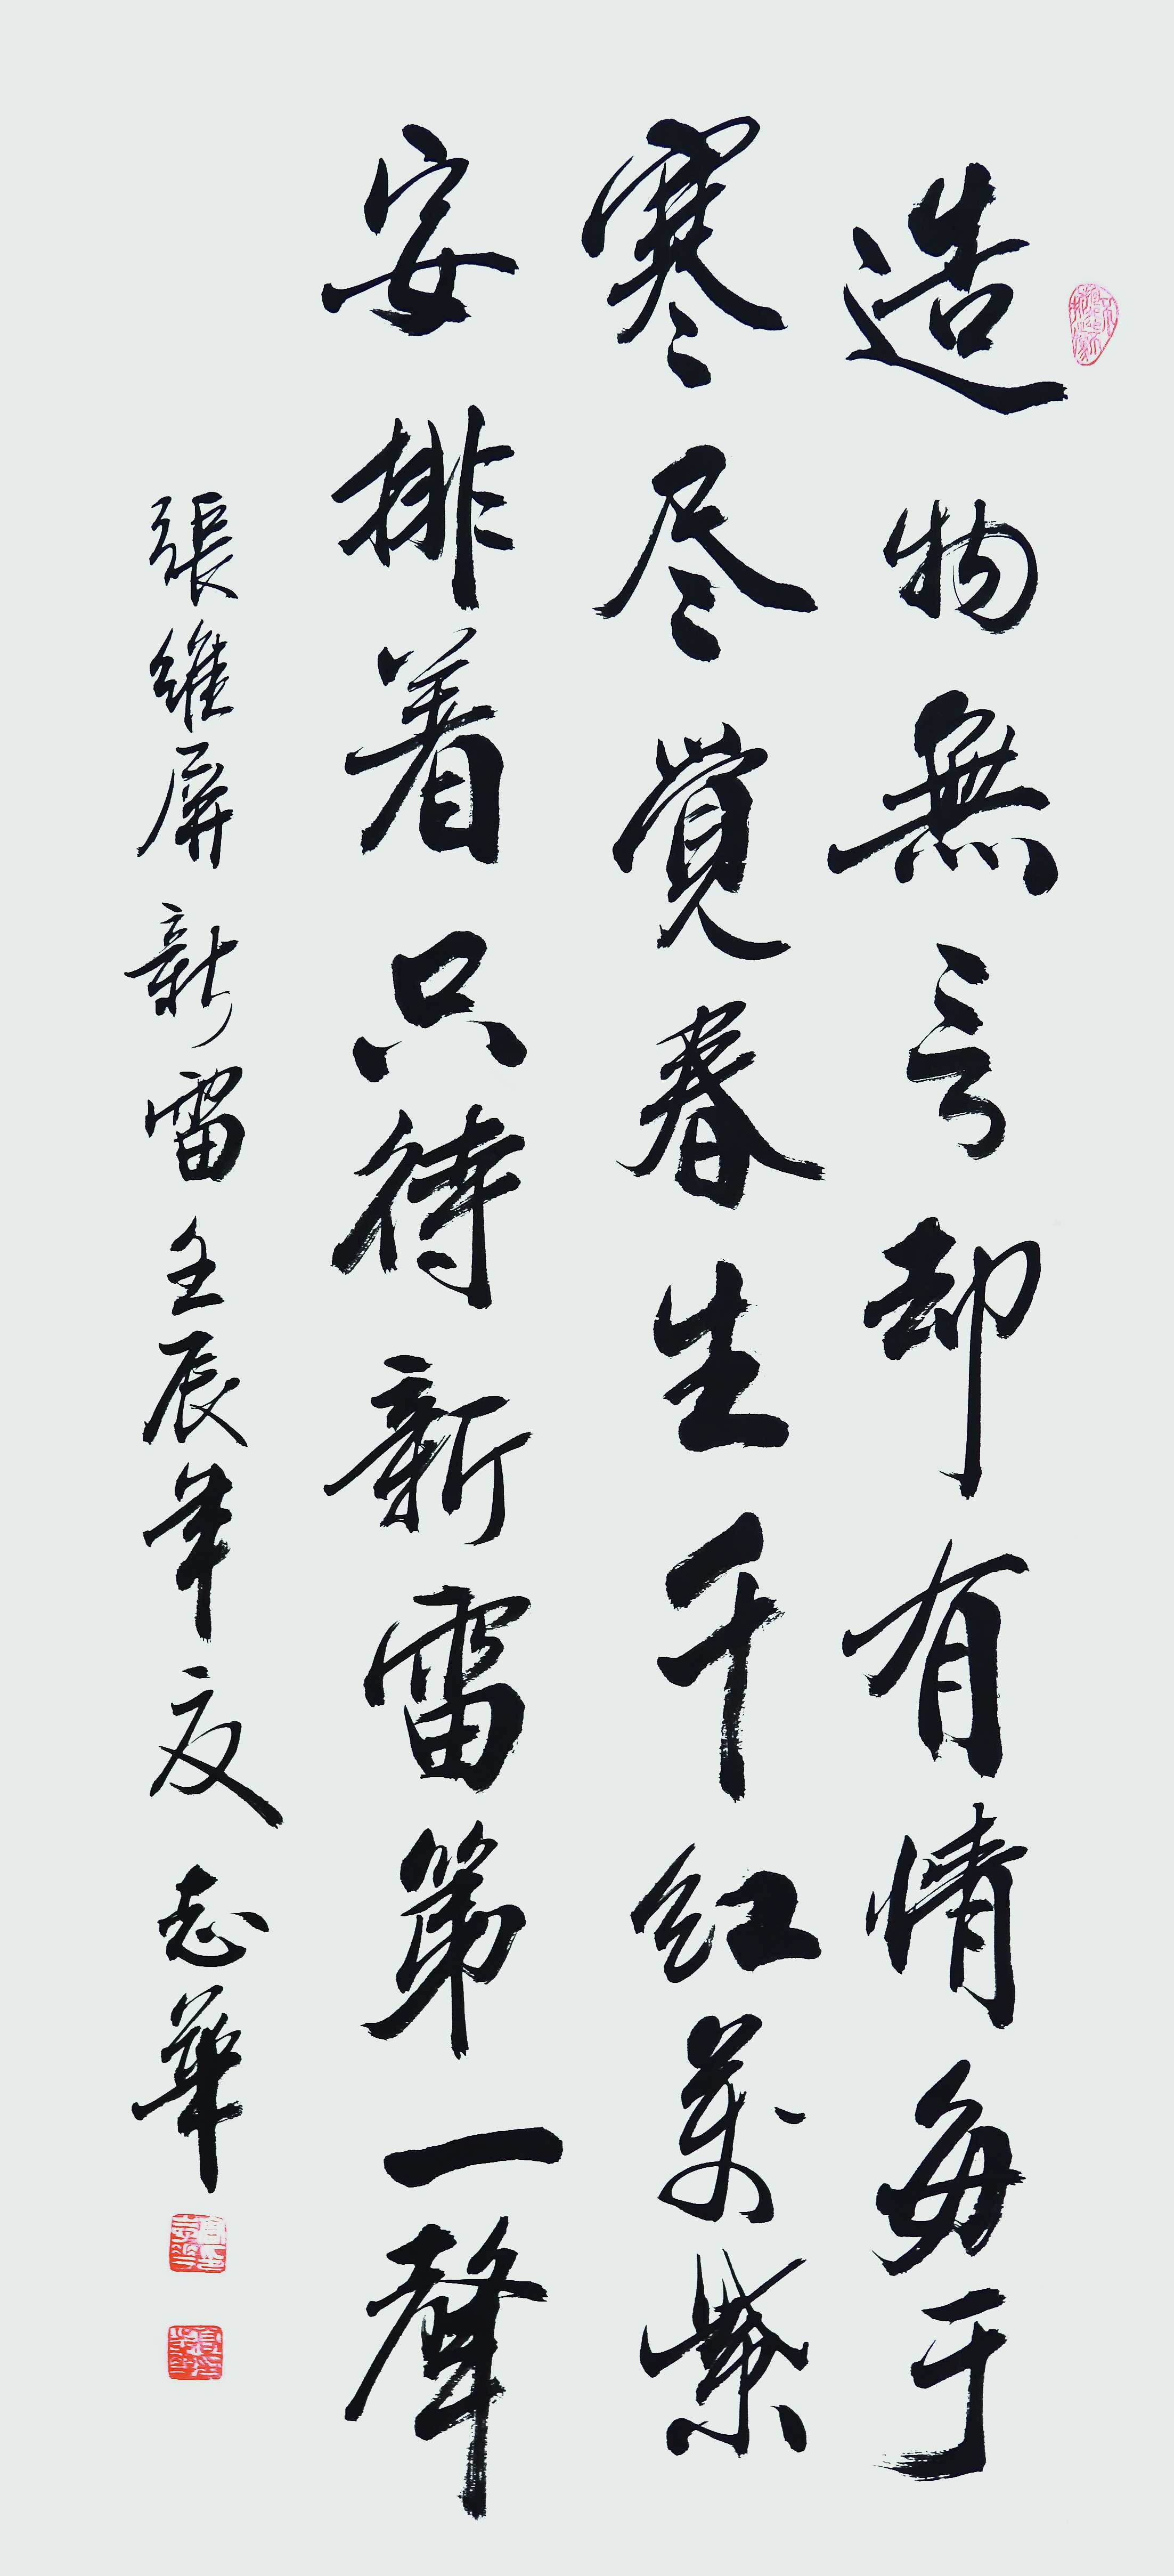 造物無言却有情每于
寒尽覺春生千红萬紫
安排着只待新雷第一聲
張維屏新雷壬辰年夏志華